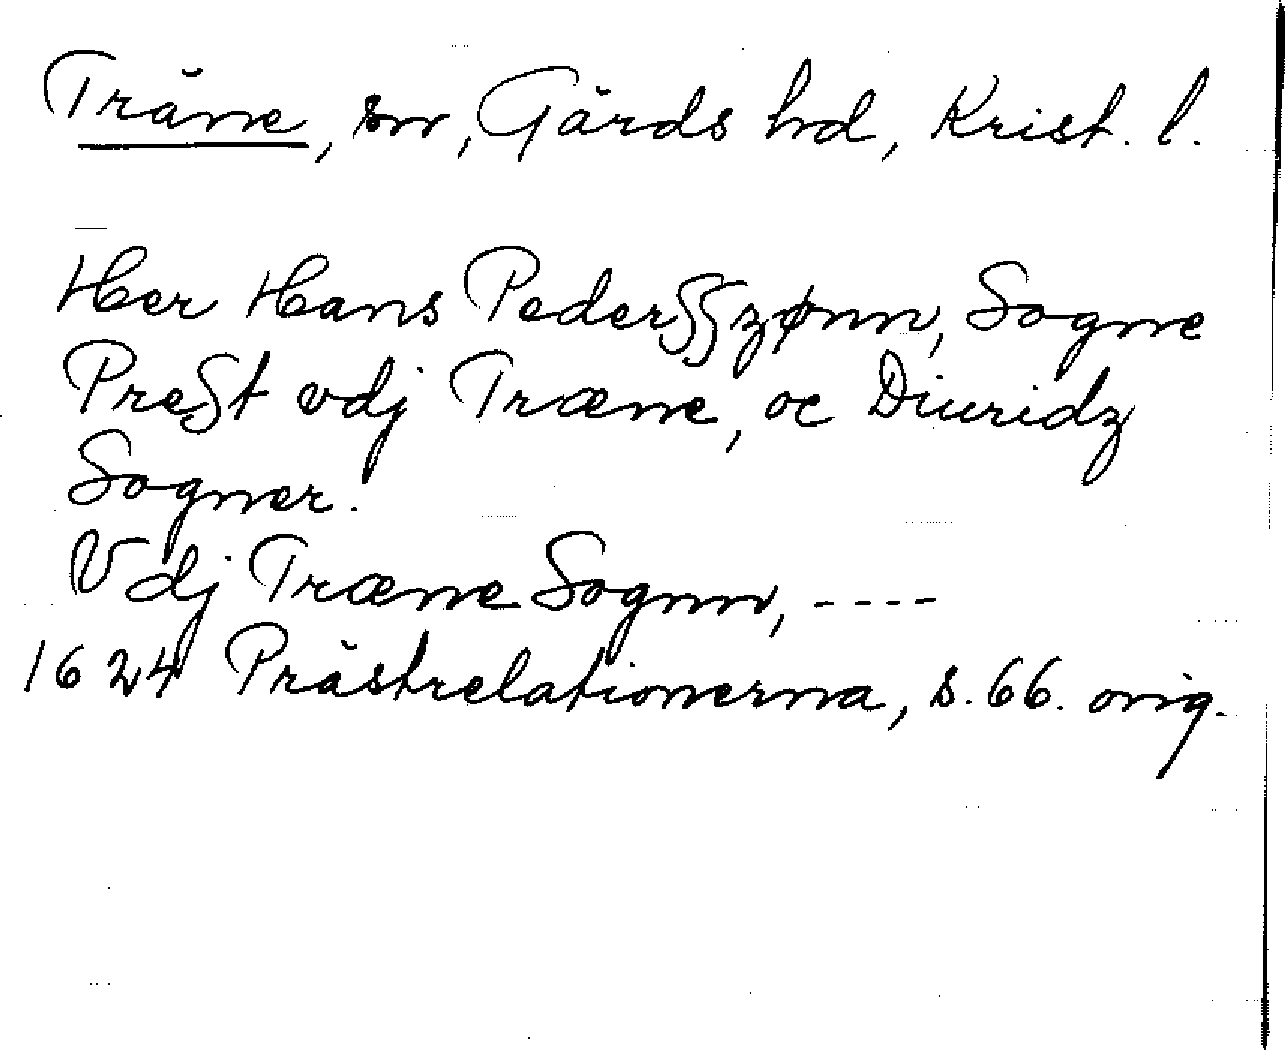 Träne, sn, Gärds hd, Krist. l.
Her Hans Pederßßzønn, Sogne
Preßt vdj Træne, oc Diuridz
Sogner.
Vdj Træne Sognn, ----
1624 Prästrelationerna, s. 66. orig.